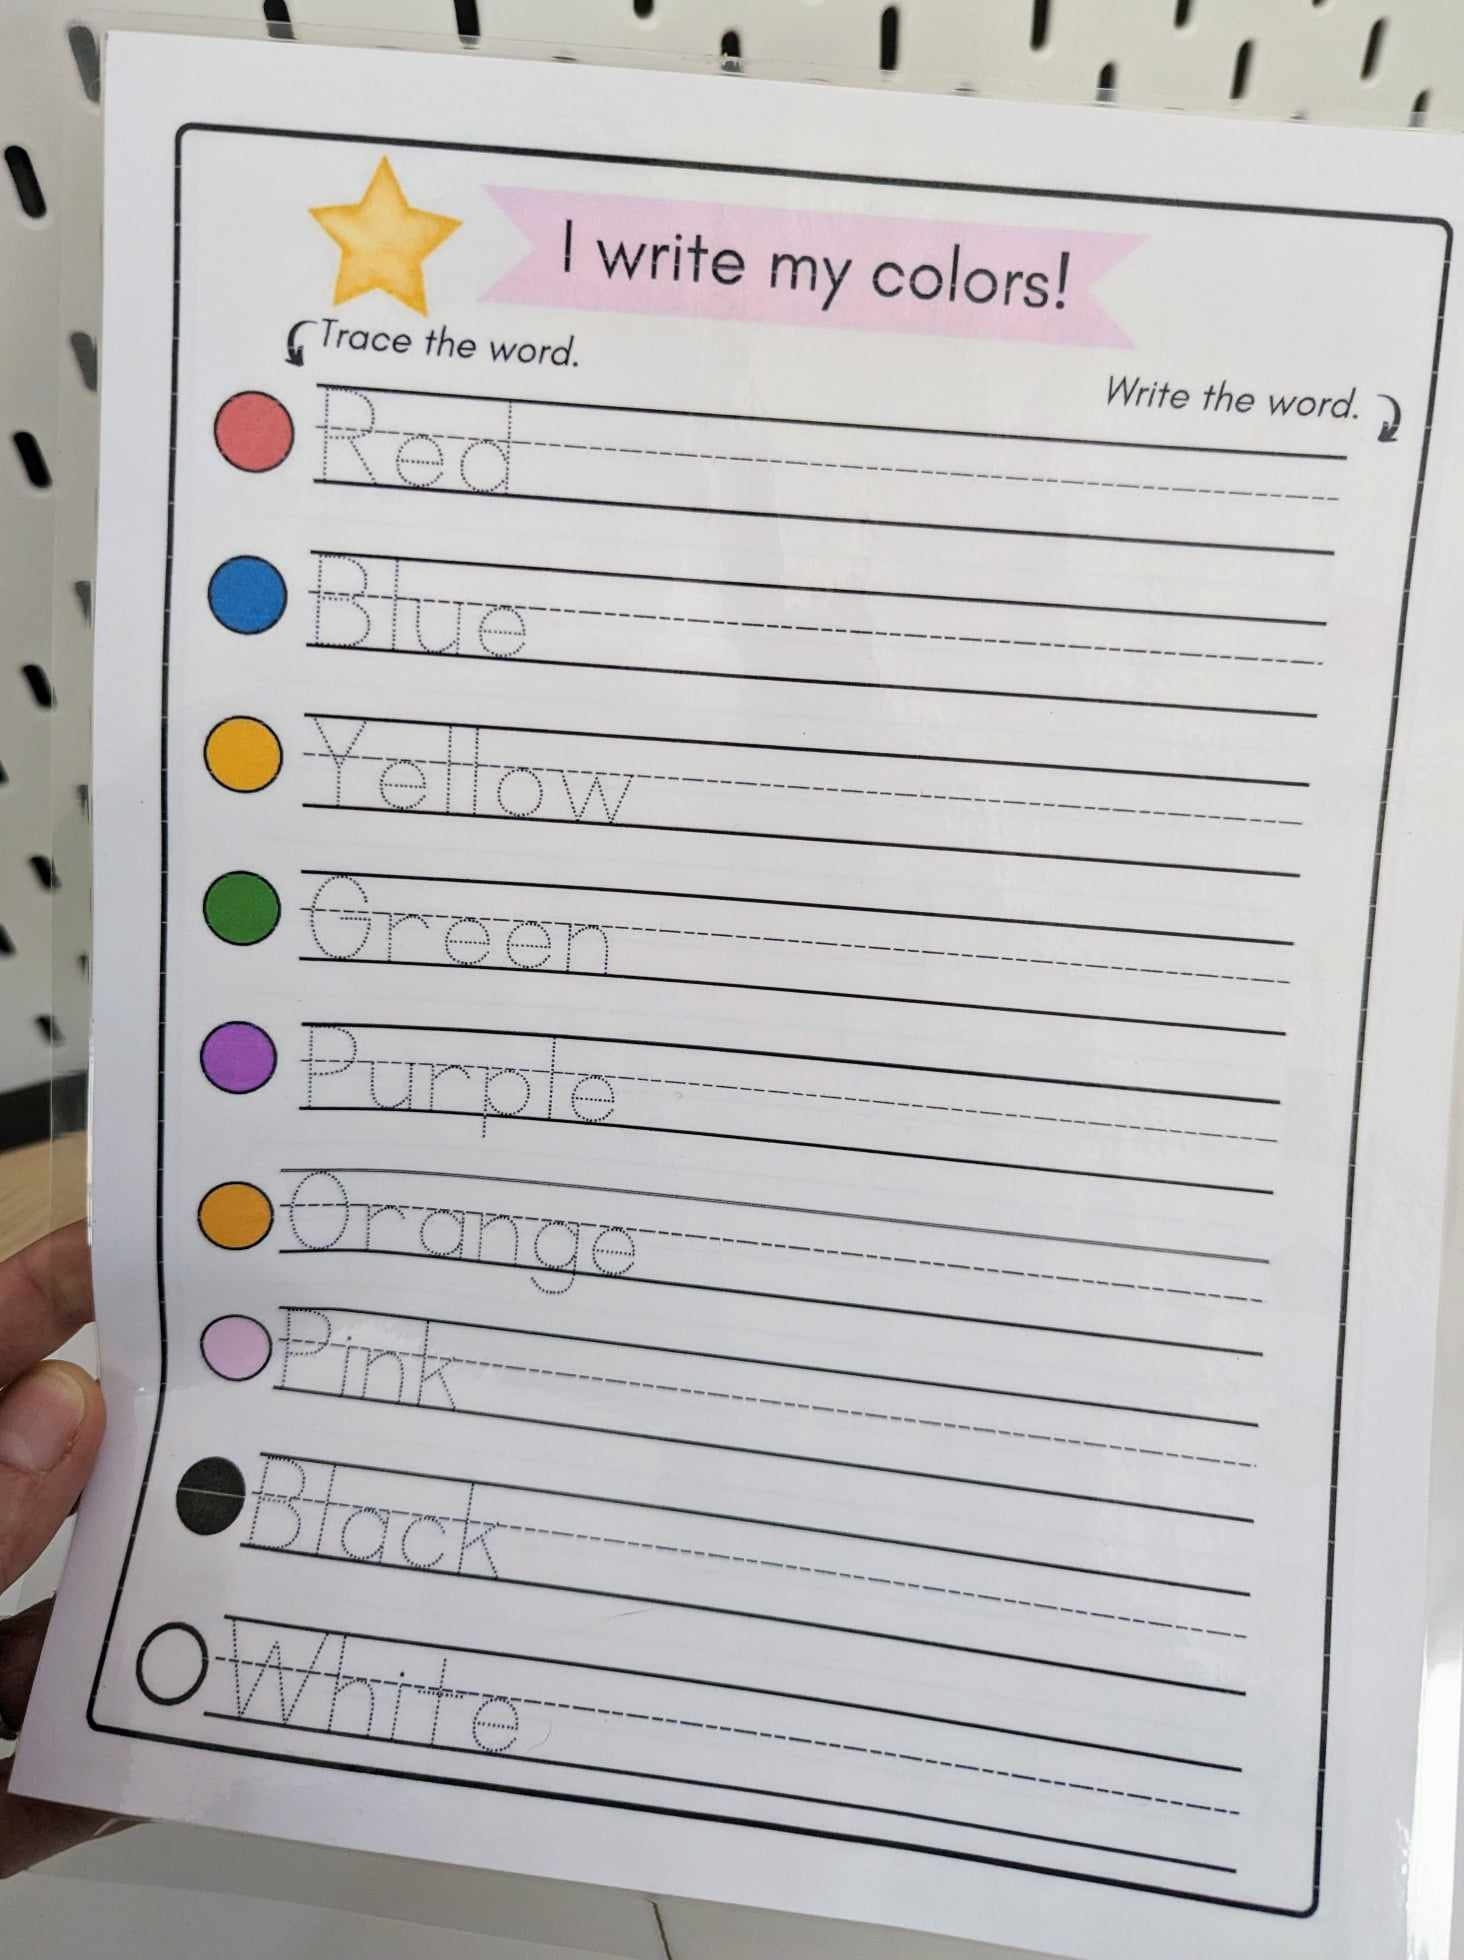 I write my colors!
Trace the word.
Write the word.
Red
Blue
Yellow
Green
Purple
Orange
Pink
Black
White